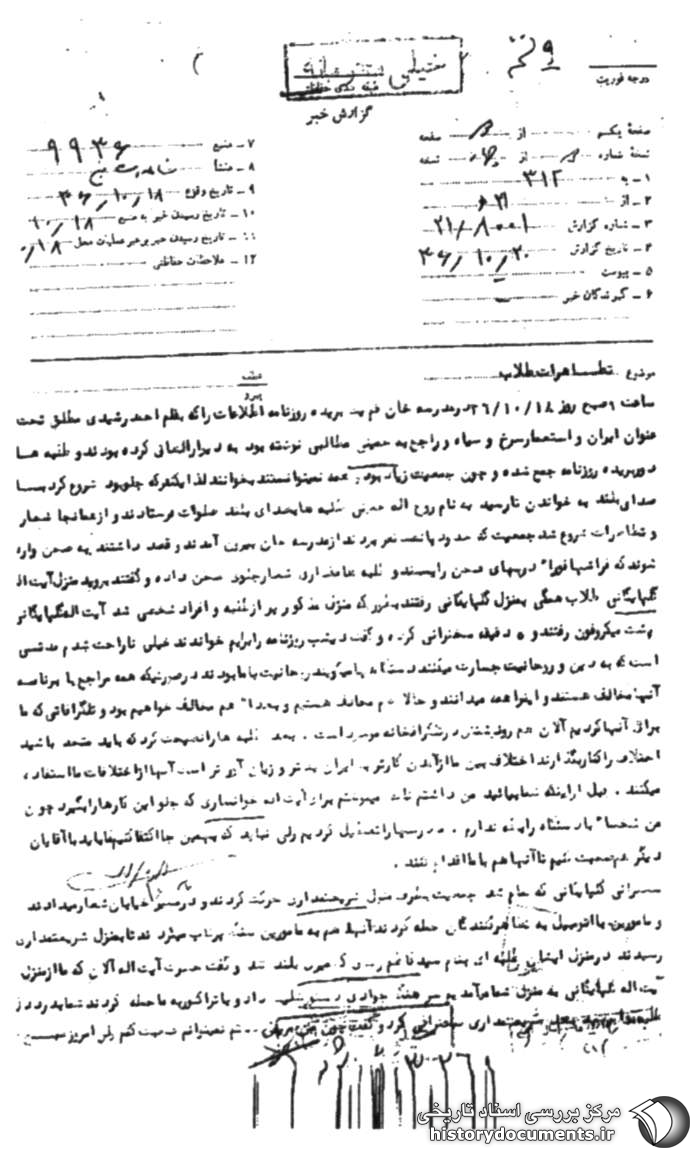 خیلی محرمانه
طبقه بندی حفاظتی
درجه فوریت
گزارش خبر
صفحه یکم از صفحه
نسخه شماره از نسخه
۱ - به ۳۱۲
۲ - از ۲۱
۳ - شماره گزارش
۴ - تاریخ گزارش ۳۶/۱۰/۲۰
۵ - پیوست
۶ - گیرندگان خبر
۷ - منبع ۹۹۳۶
۸ - منشا
۹ - تاریخ وقوع ۳۶/۱۰/۱۸
۱۰ - تاریخ رسیدن خبر به منبع ۱۰/۱۸
۱۱ - تاریخ رسیدن خبر برهبر عملیات محل
۱۲ - ملاحظات حفاظتی
موضوع تظاهرات طلاب
عطف
پیرو
ساعت ۹ صبح روز ۳۶/۱۰/۱۸ درمدرسه خان قم بریده روزنامه اطلاعات راکه بقلم احمد رشیدی مطلق تحت
عنوان ایران و استعمار سرخ و سیاه و راجع به خمینی مطالبی نوشته بود به دیوار الصاق کرده بودند و طلبه ها
دور بریده روزنامه جمع شده و چون جمعیت زیاد بود و همه نمیتوانستند بخوانند لذا یکنفر که جلو بود شروع کرد با
صدای بلند به خواندن تا رسید به نام روح اله خمینی طلبه ها بصدای بلند صلوات فرستادند و از همانجا شعار
و تظاهرات شروع شد جمعیت که حدود پانصد نفر بودند از مدرسه خان بیرون آمدند و قصد داشتند به صحن وارد
شوند که فراشها فورا" دربهای صحن را بستند و طلبه شعار جلوی صحن داده و گفتند بروید منزل آیت اله
گلپایگانی طلاب همگی بمنزل گلپایگانی رفتند بطوریکه منزل مذکور پر از طلبه و افراد شخصی شد آیت اله گلپایگانی
پشت میکروفون رفتند و ۵ دقیقه سخنرانی کرده و گفت دیشب روزنامه را برایم خواندند خیلی ناراحت شدم مدتی
است که به دین و روحانیت جسارت میکنند دستگاه میگویند روحانیت با ما بودند در صورتیکه همه مراجع با برنامه
آنها مخالف هستند و اینرا همه میدانند و حالا هم مخالف هستیم و بعدا" هم مخالف خواهیم بود و تلگرافاتی که ما
برای آنها کردیم الان هم رونوشتش در تلگرافخانه موجود است . بعد طلبه ها را نصیحت کرد که باید متحد باشید
اختلاف را کنار بگذارید اختلاف بین ما از آمدن کارتر به ایران بدتر و زیان آورتر است آنها از اختلافات ما استفاده
میکنند . قبل از اینکه شما بیائید من داشتم نامه مینوشتم برای آیت اله خوانساری که جلو این کارها را بگیرد چون
من شخصا" با دستگاه رابطه ندارم . ما درسها را تعطیل کردیم ولی نباید که بهمین جا اکتفا کنیم باید با آقایان
دیگر هم صحبت کنیم تا آنها هم با ما اقدام کنند .
سخنرانی گلپایگانی که تمام شد جمعیت بطرف منزل شریعتمداری حرکت کردند و در مسیر خیابان شعار میدادند
و مامورین با اتومبیل به تظاهرکنندگان حمله کردند آنها هم به مامورین سنگ پرتاب میکردند تا بمنزل شریعتمداری
رسیدند در منزل ایشان طلبه ای بنام سید بلند شد و گفت حضرت آیت اله الان که ما از منزل
آیت اله گلپایگانی به منزل شما می‌آمدیم سرهنگ جوادی دستور داد و با تراکتور به ما حمله کردند
شریعتمداری سخنرانی کرد و گفت چون نمیتوانم صحبت کنم ولی امروز
مرکز بررسی اسناد تاریخی
historydocuments.ir